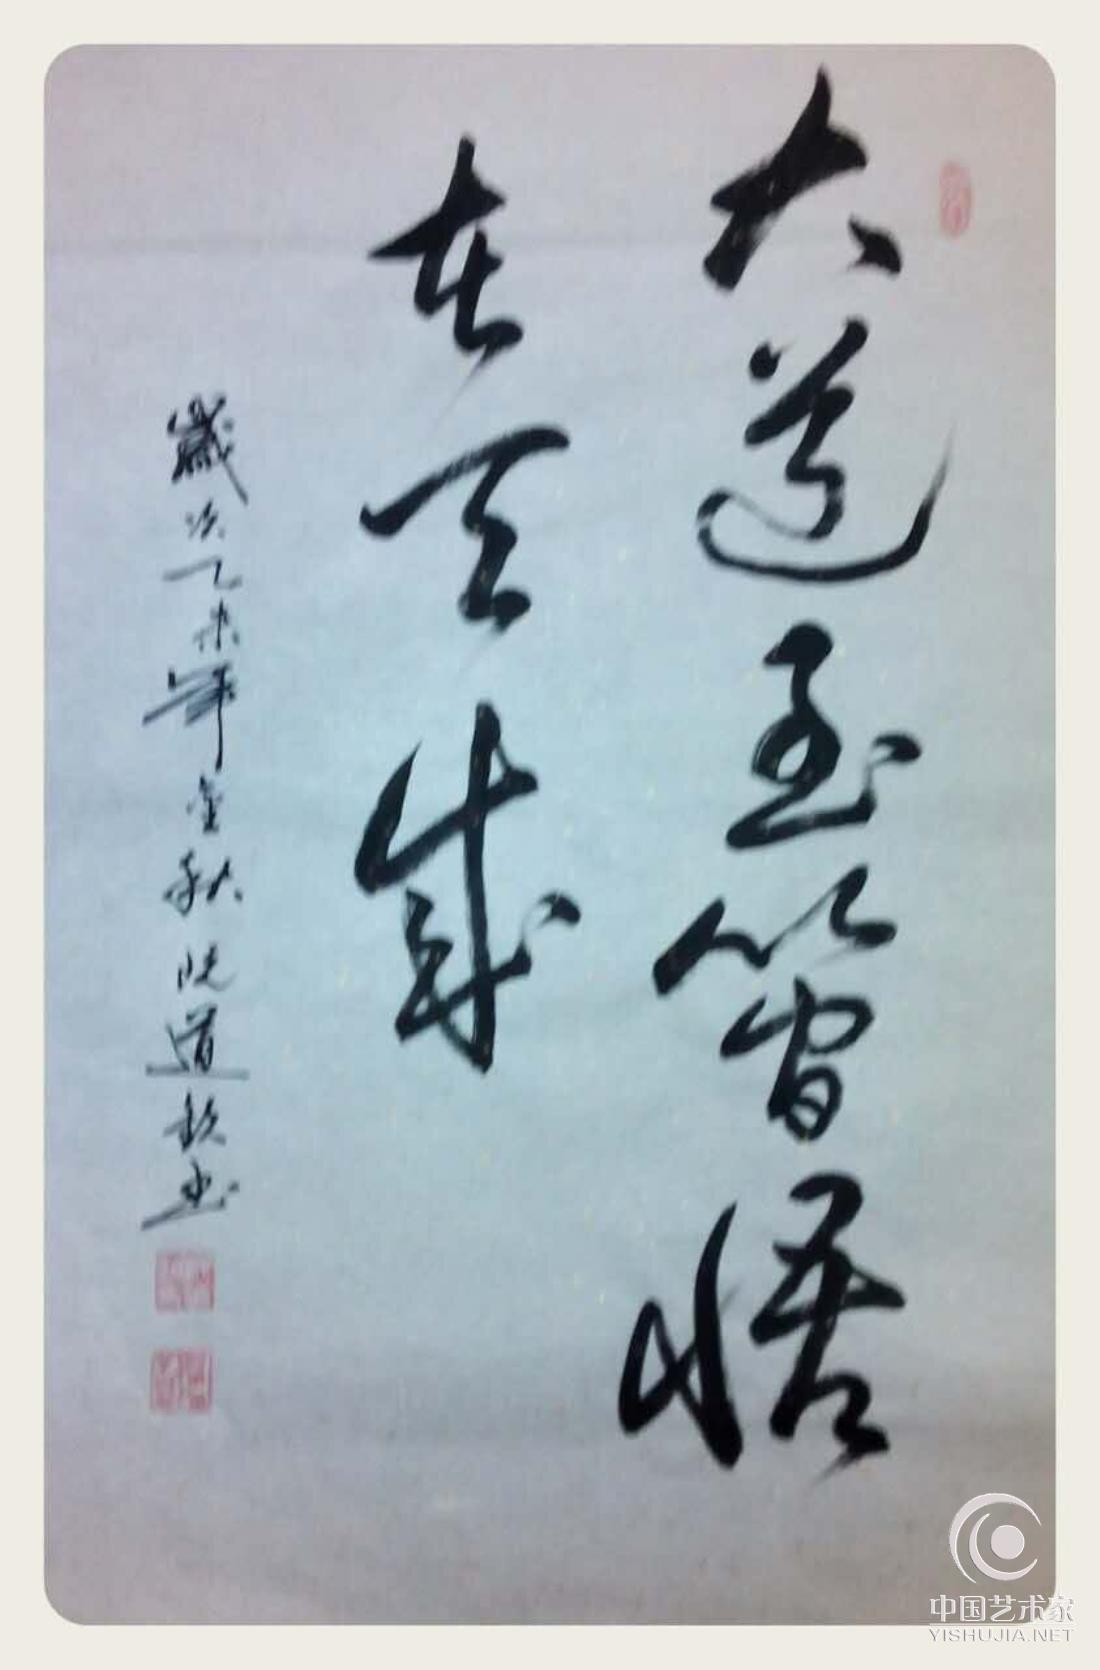 大道至簡悟
在天成
歲次乙未年金秋阮道欽书
中国艺术家
YISHUJIA.NET